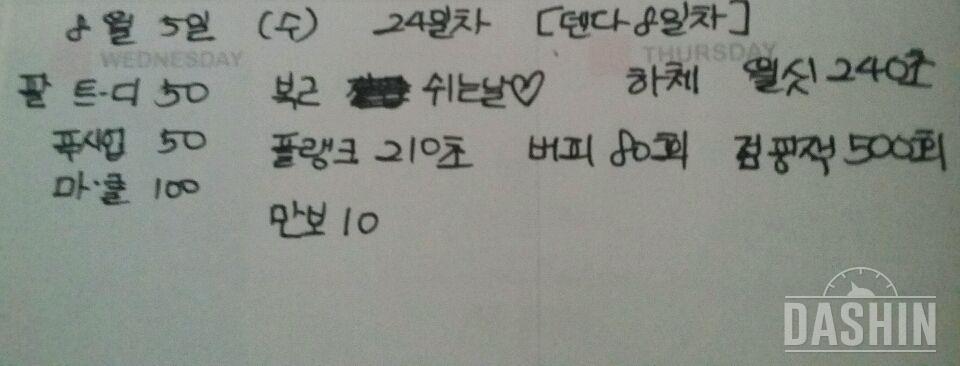 8월 5일 (수) 24일차 [덴다 8일차]
WEDNESDAY THURSDAY
팔 트·디 50 복근 쉬는날♡ 하체 월싯 240초
푸시업 50 플랭크 210초 버피 80회 점핑잭 500회
마·클 100
만보 10
DASHIN